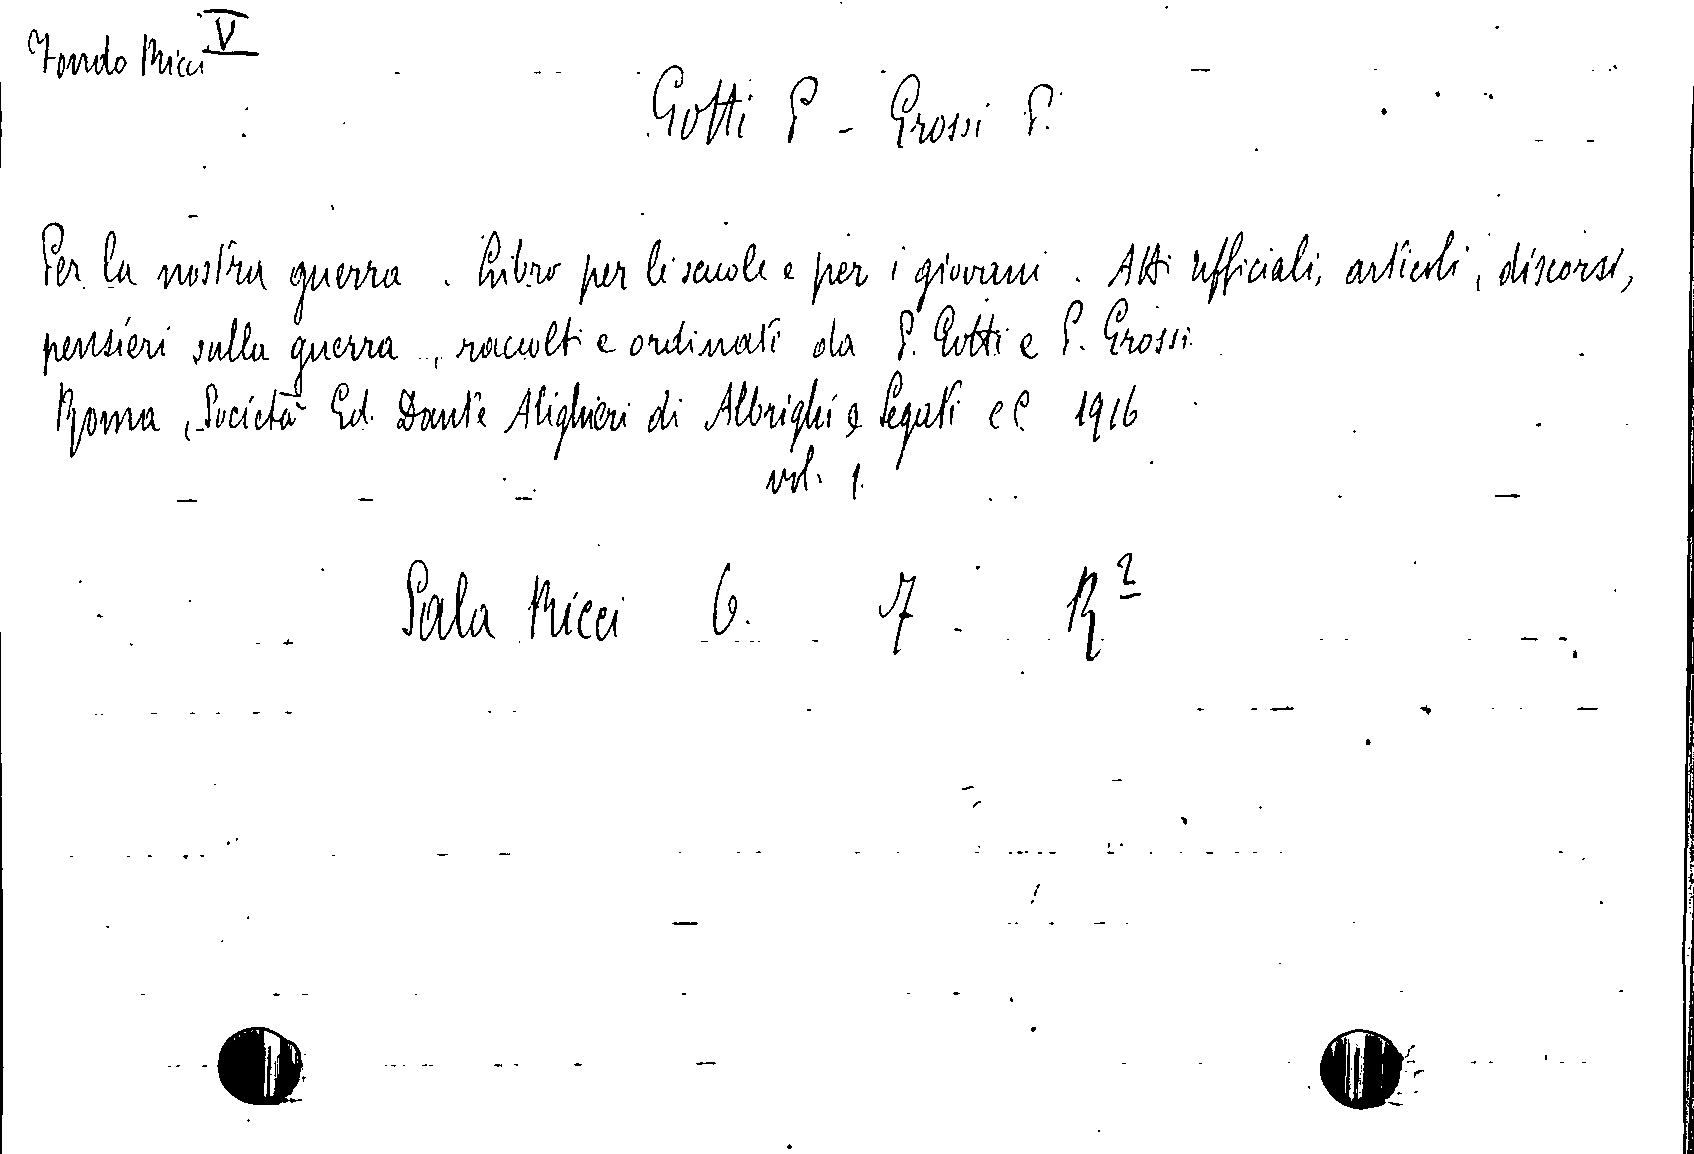 Fondo Ricci V
Gotti P - Grossi P.
Per la nostra guerra. Libro per le scuole e per i giovani. Atti ufficiali, articoli, discorsi,
pensieri sulla guerra, raccolti e ordinati da P. Gotti e P. Grossi
Roma, Società Ed. Dante Alighieri di Albrighi e Segati e C 1916
vol. 1.
Sala Ricci 6. 7 R²